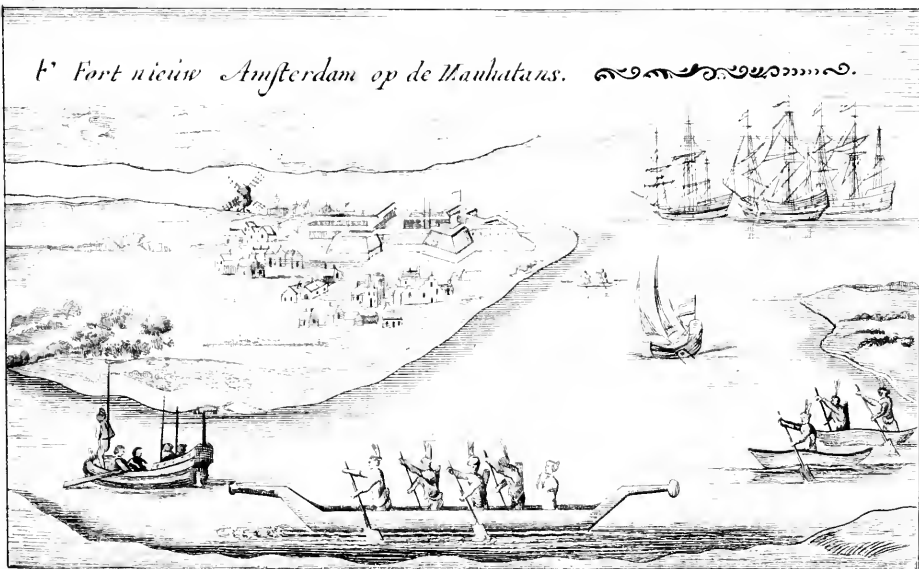 t' Fort nieuw Amſterdam op de Manhatans.